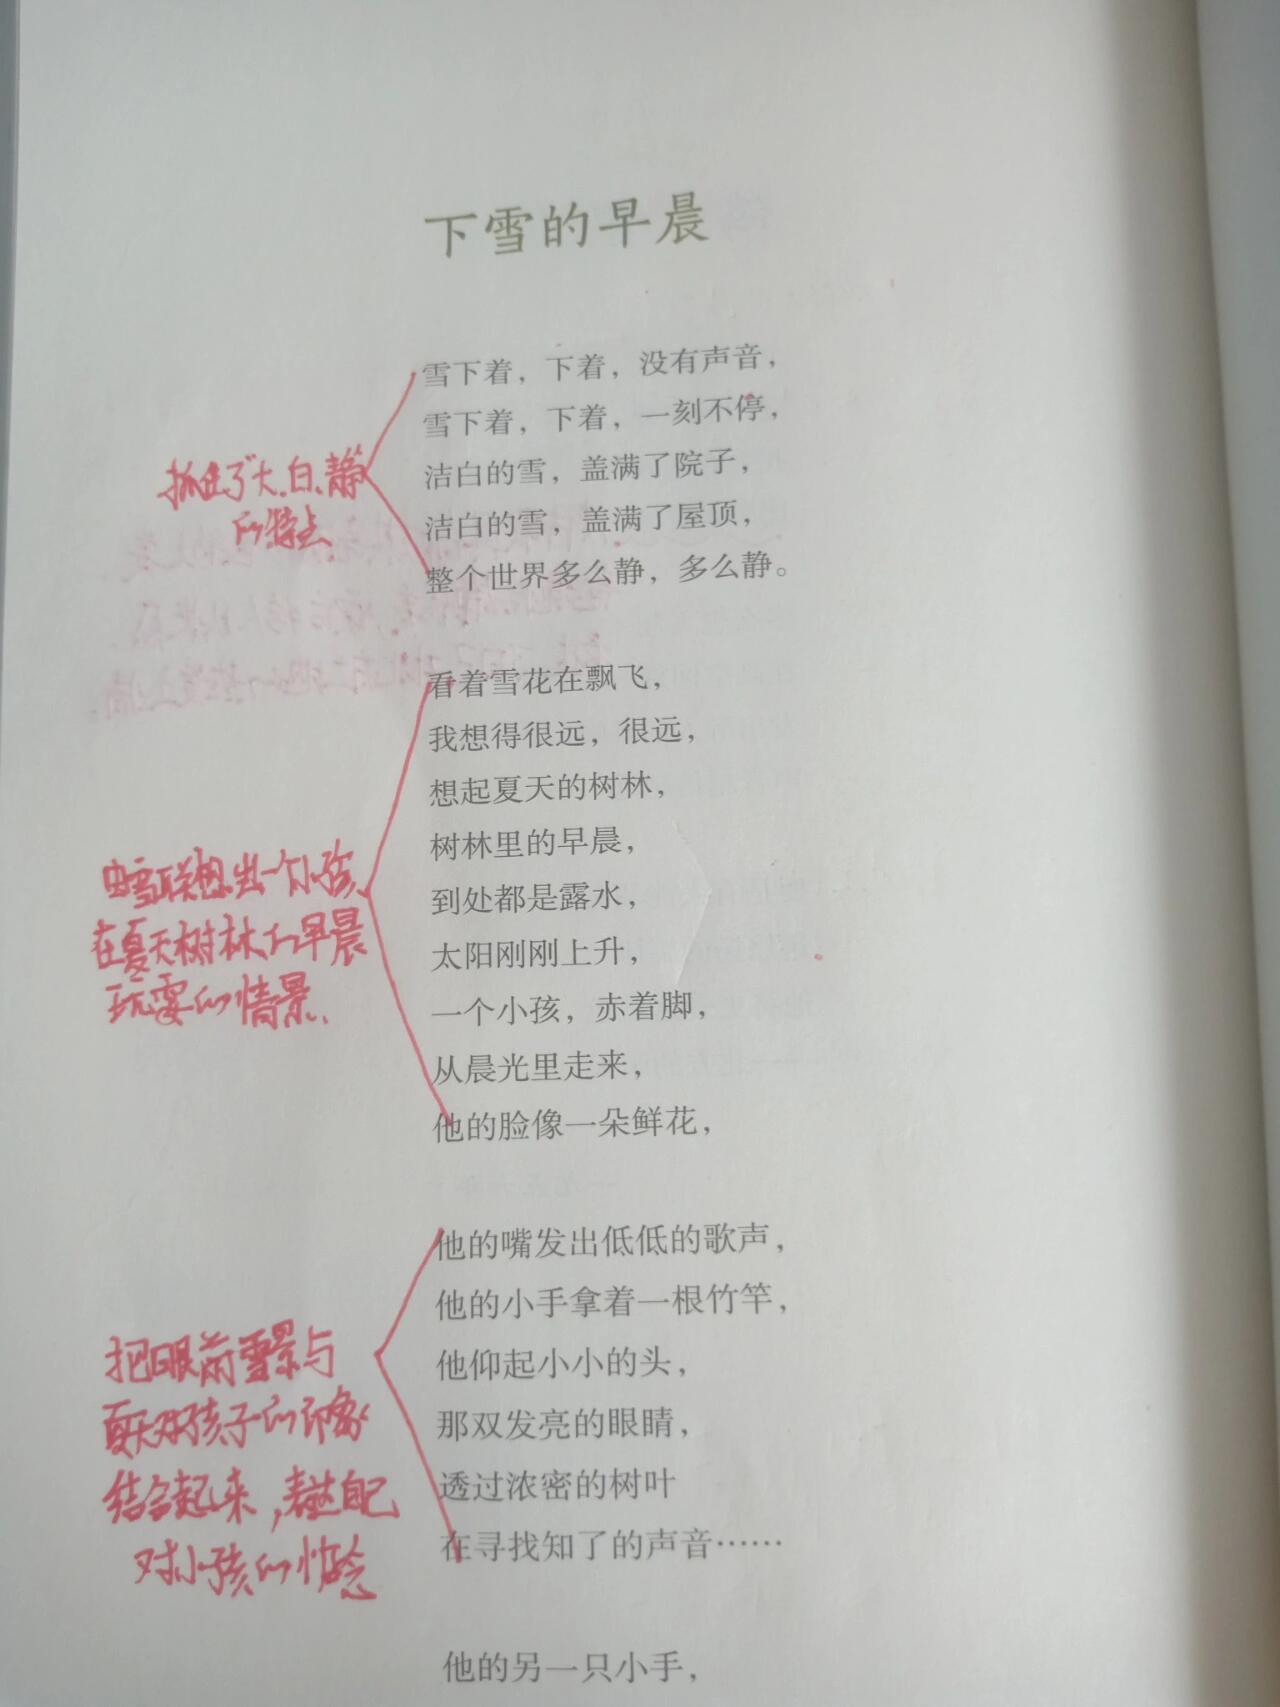 下雪的早晨
雪下着，下着，没有声音，
雪下着，下着，一刻不停，
洁白的雪，盖满了院子，
洁白的雪，盖满了屋顶，
整个世界多么静，多么静。
抓住了"大、白、静"
的特点
看着雪花在飘飞，
我想得很远，很远，
想起夏天的树林，
树林里的早晨，
到处都是露水，
太阳刚刚上升，
一个小孩，赤着脚，
从晨光里走来，
他的脸像一朵鲜花，
由雪联想出一个小孩
在夏天树林的早晨
玩耍的情景.
他的嘴发出低低的歌声，
他的小手拿着一根竹竿，
他仰起小小的头，
那双发亮的眼睛，
透过浓密的树叶
在寻找知了的声音……
把眼前雪景与
夏天对孩子的印象
结合起来，表达自己
对小孩的惦念
他的另一只小手，